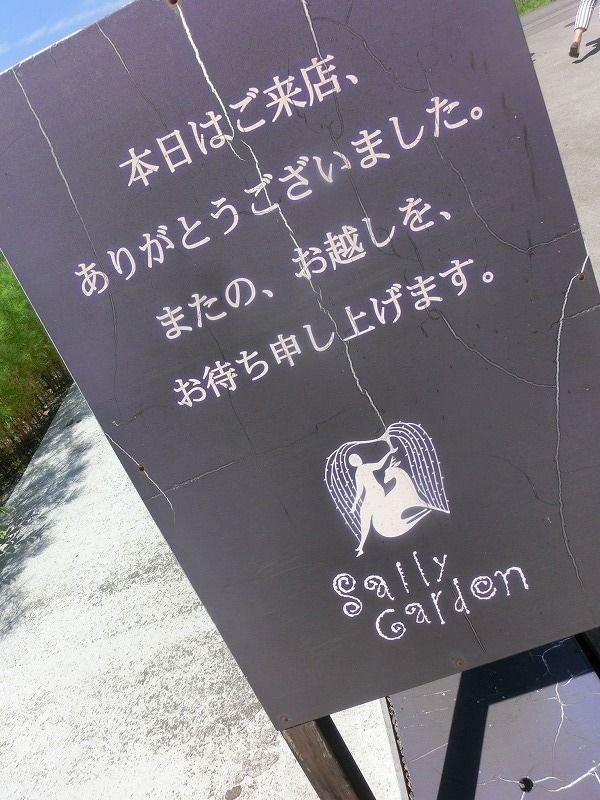 本日はご来店、
ありがとうございました。
またの、お越しを、
お待ち申し上げます。
Sally
Garden